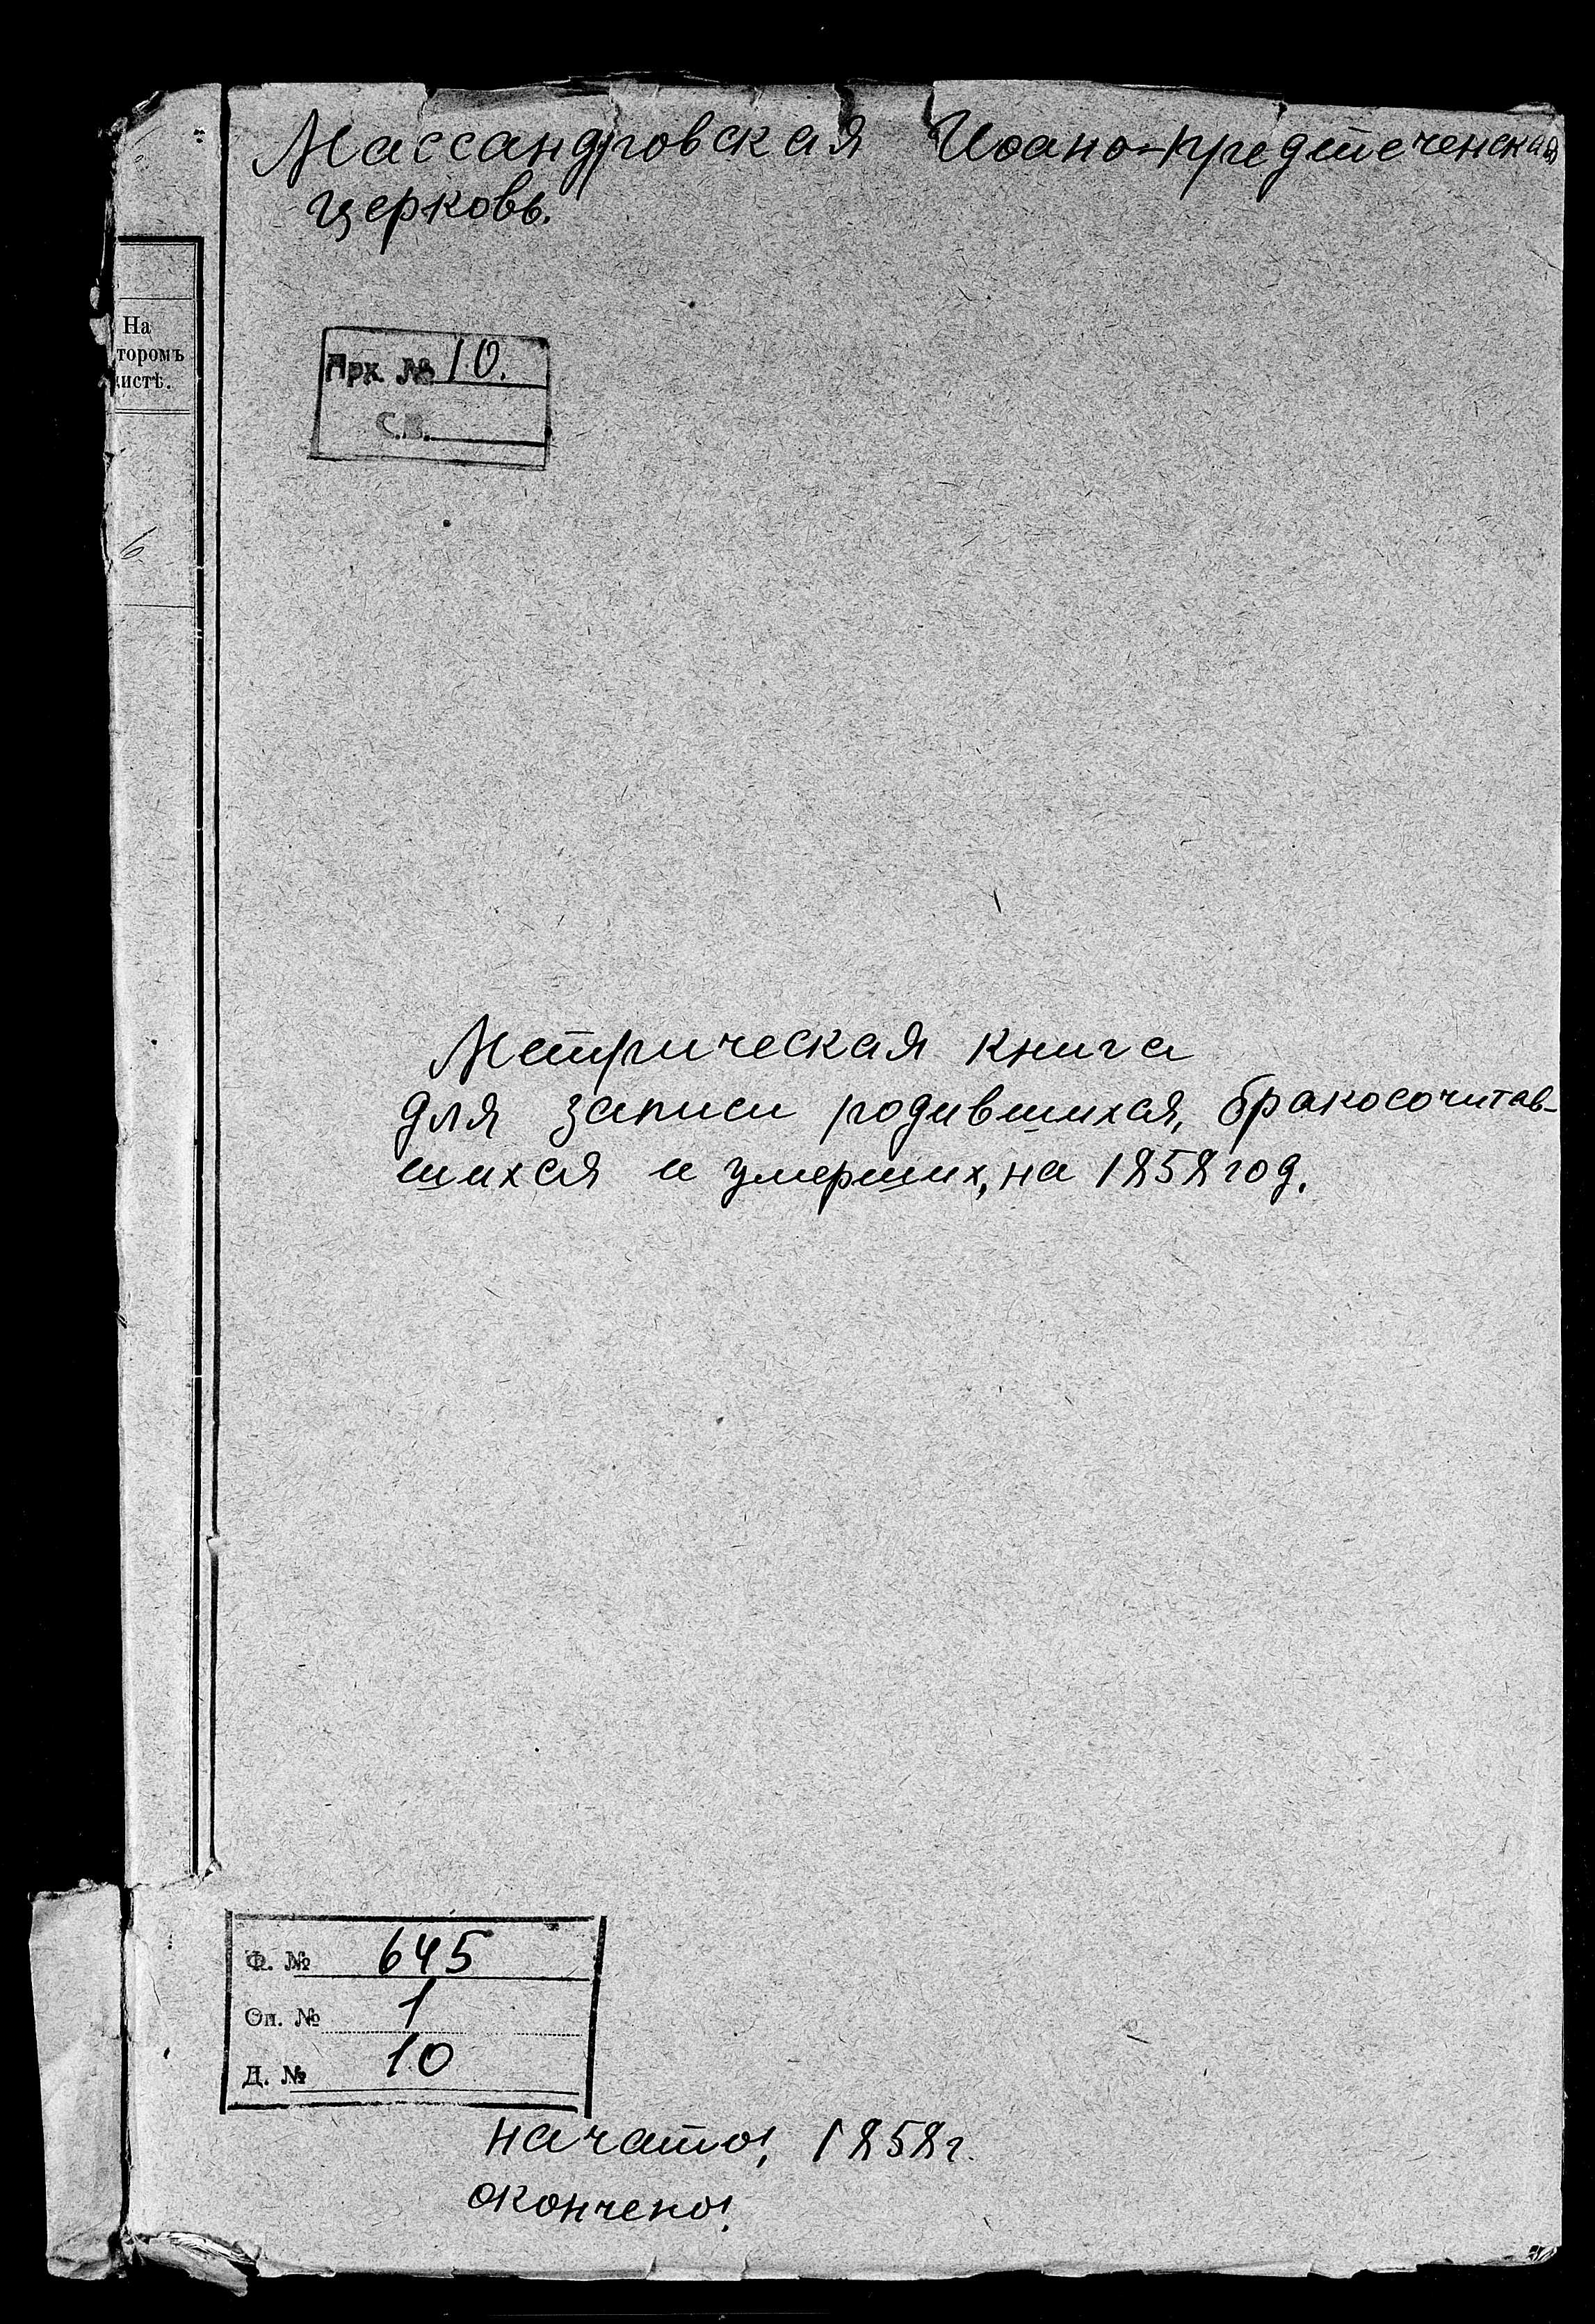 Массандровская Иоано-предтеченская
церковь.
На
торомъ
листѣ.
Арх. № 10.
С.В.
6
Метрическая книга
для записи родившихся, бракосочитав-
шихся и умерших, на 1858 год.
Ф. № 645
Оп. № 1
Д. № 10
начато! 1858 г.
окончено!